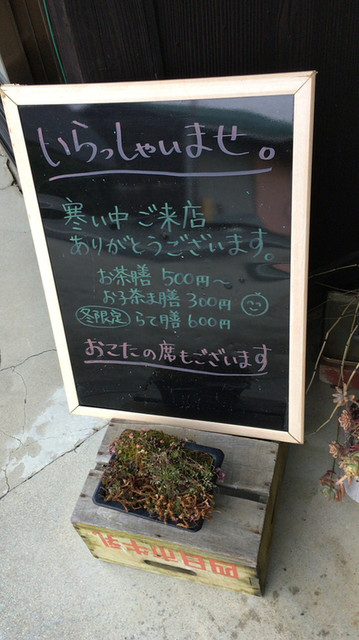 いらっしゃいませ。
寒い中ご来店
ありがとうございます。
お茶膳 500円〜
お子茶ま膳 300円
冬限定 らて膳 600円
おこたの席もございます
四日市牛乳